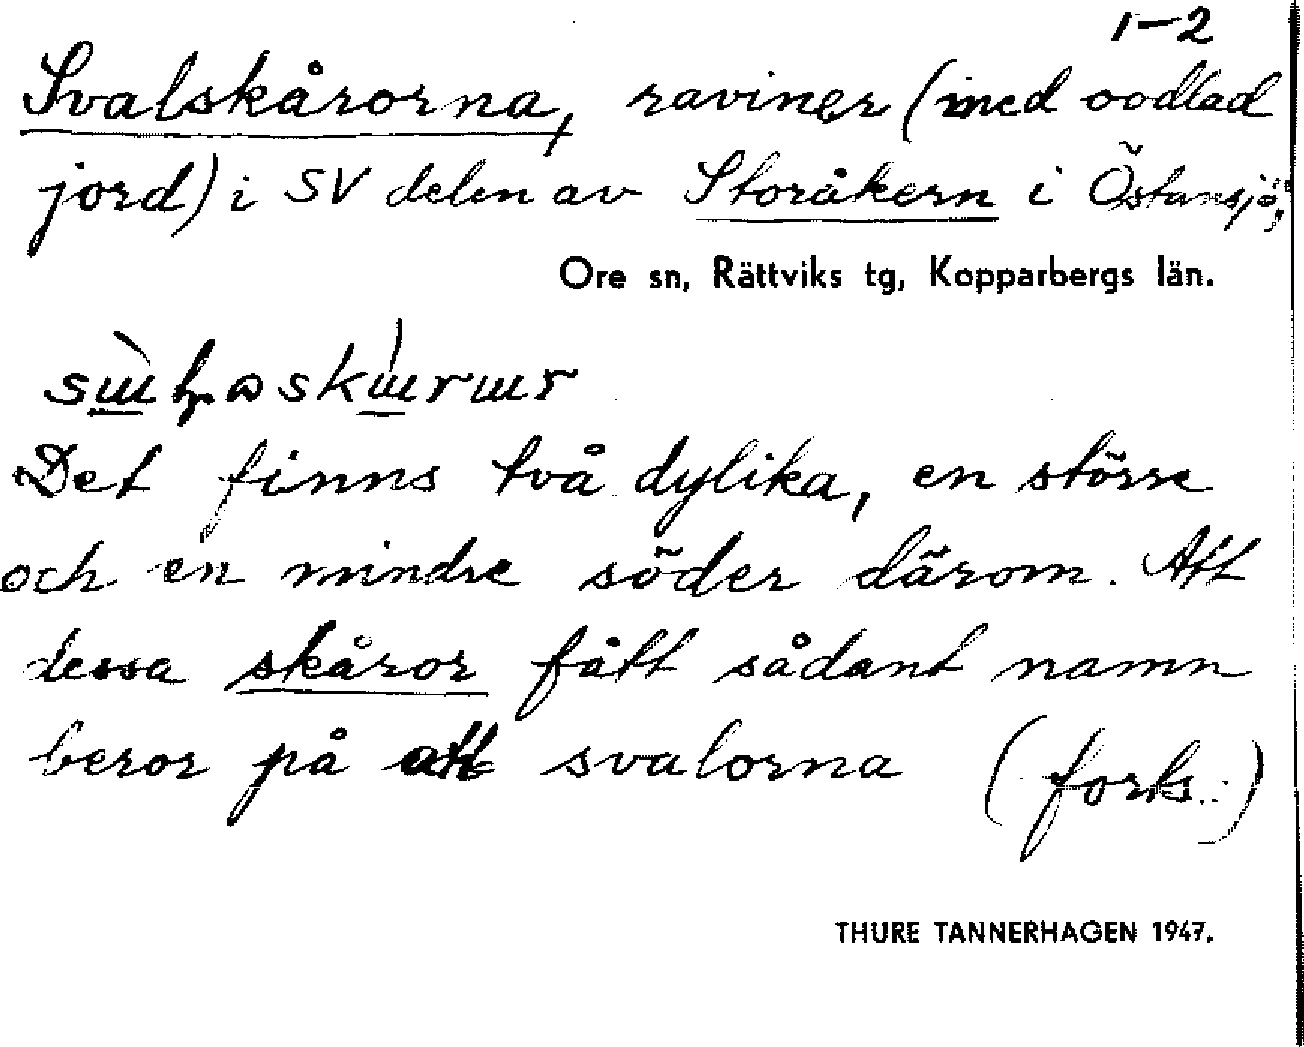 1-2
Svalskårorna, raviner (med oodlad
jord) i SV delen av Storåkern i Östansjö,
Ore sn, Rättviks tg, Kopparbergs län.
Det finns två dylika, en större
och en mindre söder därom. Att
dessa skåror fått sådant namn
beror på att svalorna (forts.)
THURE TANNERHAGEN 1947.